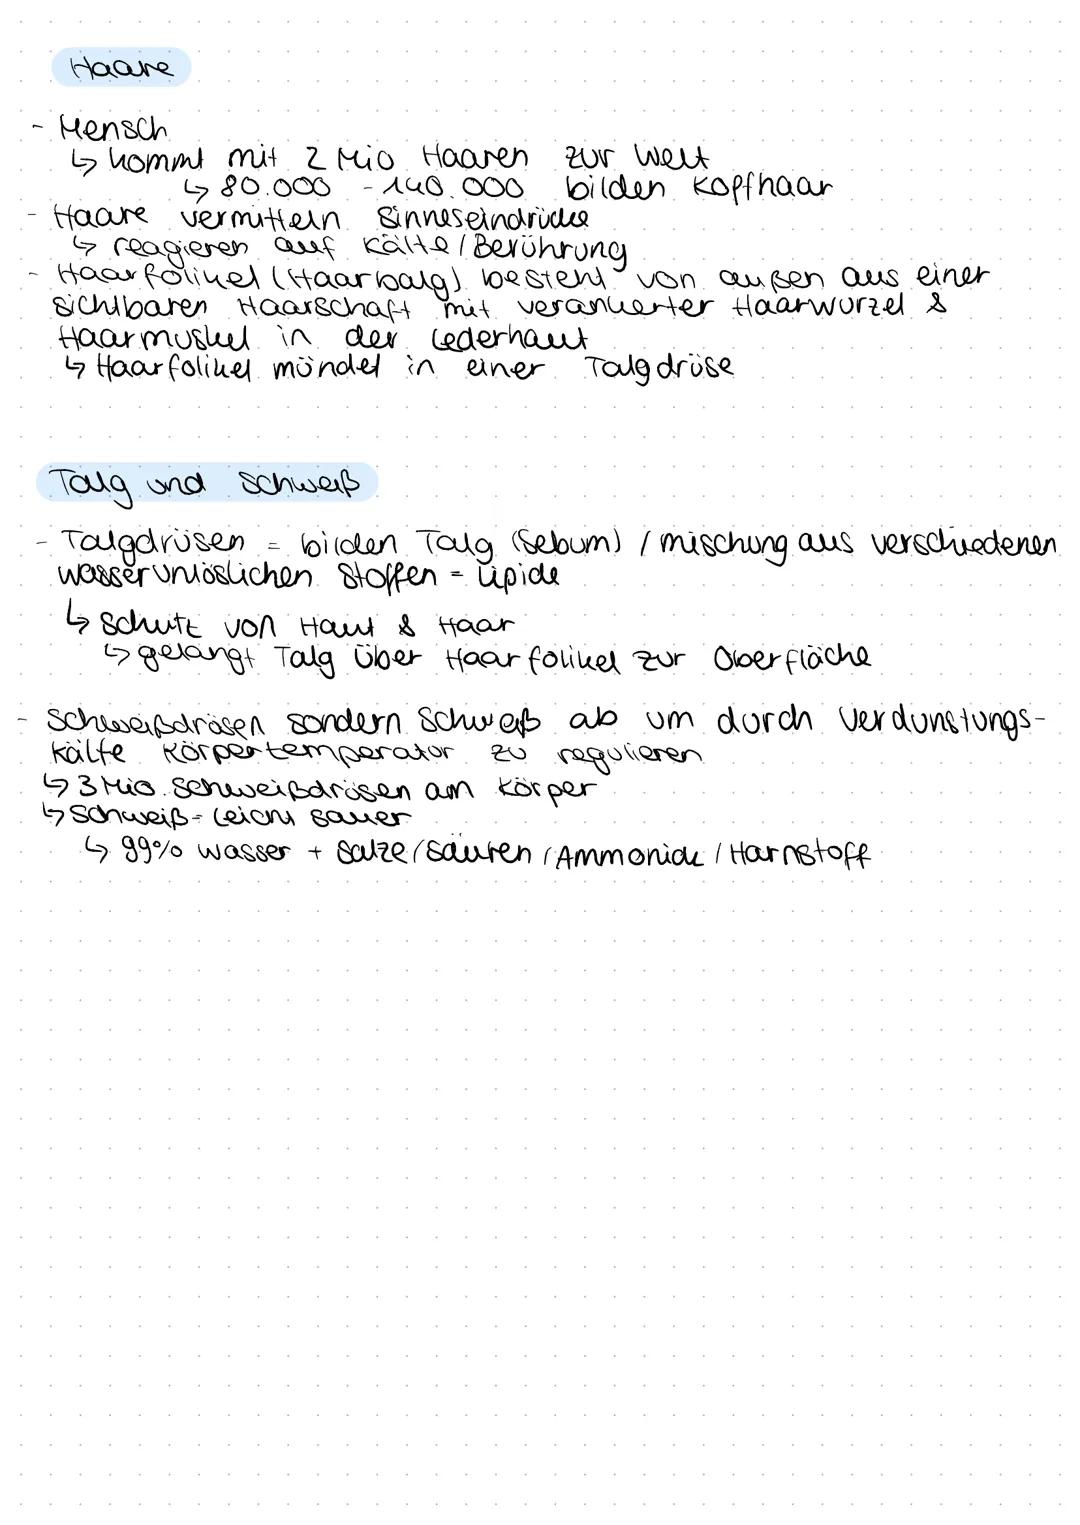 Haare
- Mensch
↳ kommt mit 2 Mio Haaren zur Welt
↳ 80.000 - 140.000 bilden Kopfhaar
- Haare vermitteln Sinneseindrücke
↳ reagieren auf Kälte / Berührung
- Haarfolikel (Haarbalg) besteht von außen aus einer
sichtbaren Haarschaft mit verankerter Haarwurzel &
Haarmuskel in der Lederhaut
↳ Haarfolikel mündet in einer Talgdrüse
Talg und Schweiß
- Talgdrüsen = bilden Talg (Sebum) / mischung aus verschiedenen
wasserunlöslichen Stoffen = Lipide
↳ Schutz von Haut & Haar
↳ gelangt Talg über Haarfolikel zur Oberfläche
- Schweißdrüsen sondern Schweiß ab um durch Verdunstungs-
kälte Körpertemperatur zu regulieren
↳ 3 Mio. Schweißdrüsen am Körper
↳ Schweiß = leicht sauer
↳ 99% wasser + Salze / Säuren / Ammoniak / Harnstoff